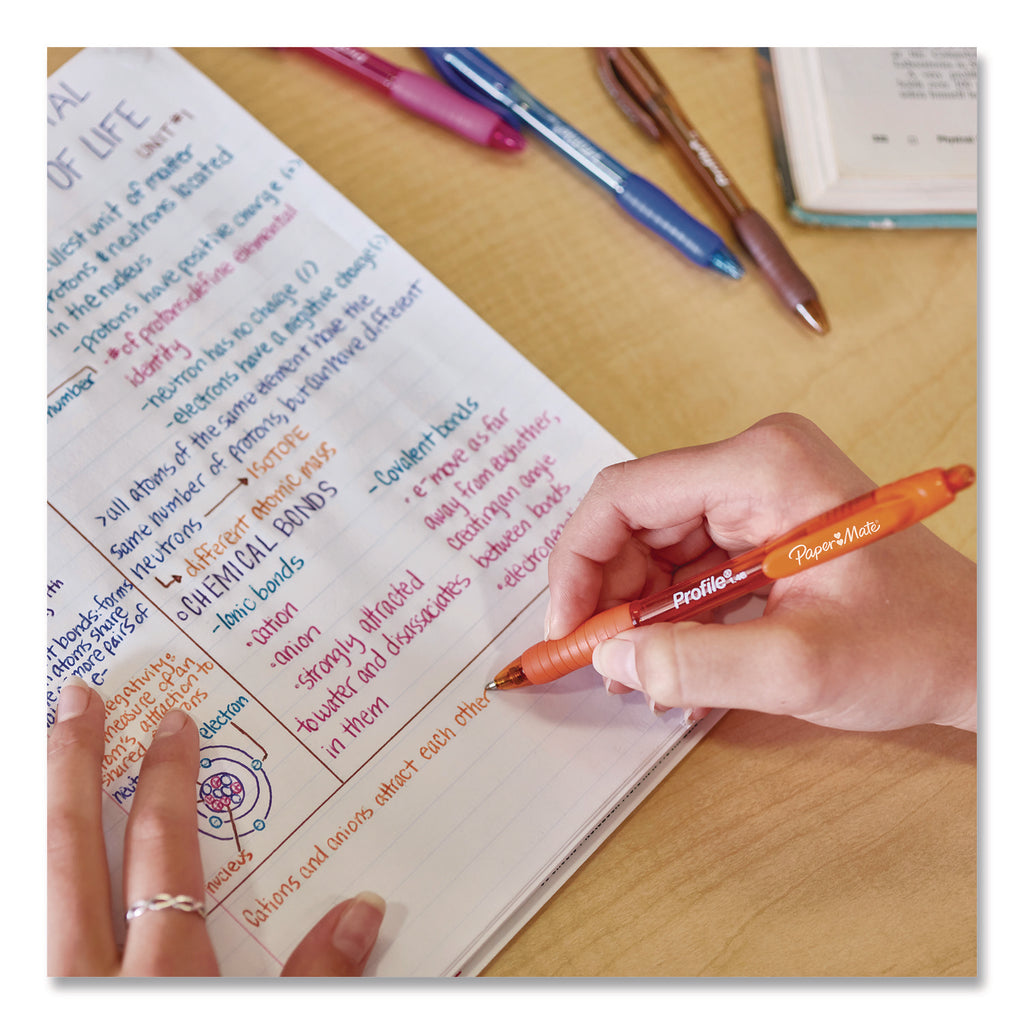 TAL
OF LIFE
UNIT #1
llest unit of matter
rotons & neutrons located
in the nucleus
-protons have positive charge (+)
•# of protons define elemental
identity
-neutron has no charge ( )
-electrons have a negative charge (-)
number
>all atoms of the same element have the
same number of protons, but can have different
neutrons → ISOTOPE
different atomic mass
CHEMICAL BONDS
-Ionic bonds
•cation
•anion
•strongly attracted
to water and disassociates
in them
-Covalent bonds
•e⁻ move as far
away from each other,
creating an angle
between bonds
•electroneg
th
t bonds: forms
n atoms share
more pairs of
e-
negativity:
measure of an
om's attraction to
shared
neut
electron
nucleus
Cations and anions attract each other
Profile®
1.4B
Paper Mate®